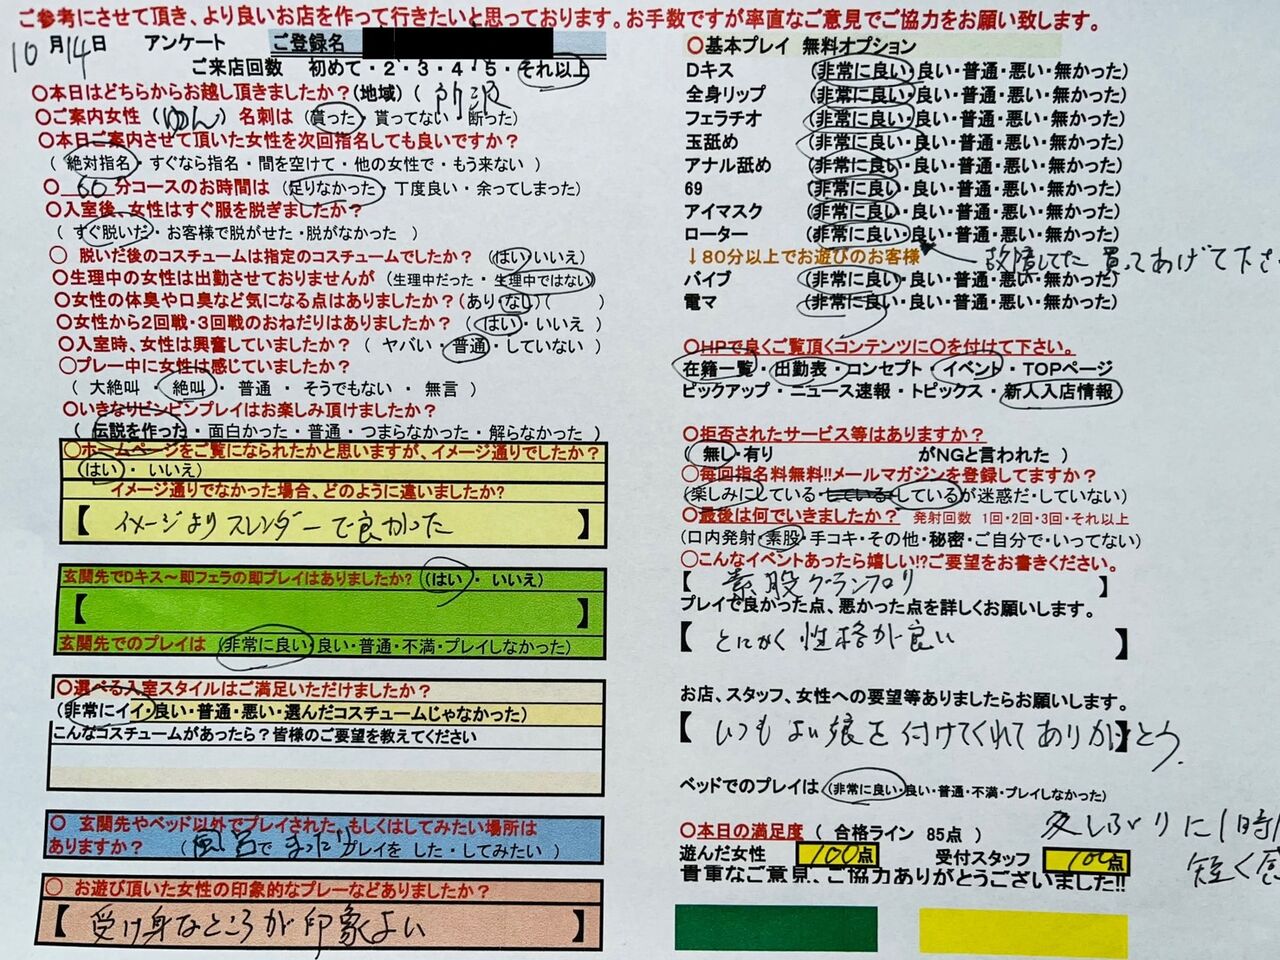 ご参考にさせて頂き、より良いお店を作って行きたいと思っております。お手数ですが率直なご意見でご協力をお願い致します。
10月14日 アンケート ご登録名
ご来店回数 初めて・2・3・4・5・それ以上
〇本日はどちらからお越し頂きましたか?(地域)( 所沢
〇ご案内女性 ( ゆん ) 名刺は (貰った・貰ってない・断った)
〇本日ご案内させて頂いた女性を次回指名しても良いですか?
( 絶対指名・すぐなら指名・間を空けて・他の女性で・もう来ない )
〇 60 分コースのお時間は (足りなかった・丁度良い・余ってしまった)
〇入室後、女性はすぐ服を脱ぎましたか?
( すぐ脱いだ・お客様で脱がせた・脱がなかった )
〇 脱いだ後のコスチュームは指定のコスチュームでしたか? (はい・いいえ)
〇生理中の女性は出勤させておりませんが (生理中だった・生理中ではない)
〇女性の体臭や口臭など気になる点はありましたか?(あり・なし)( )
〇女性から2回戦・3回戦のおねだりはありましたか? ( はい・いいえ )
〇入室時、女性は興奮していましたか? ( ヤバい・普通・していない )
〇プレー中に女性は感じていましたか?
( 大絶叫・絶叫・普通・そうでもない・無言 )
〇いきなりビンビンプレイはお楽しみ頂けましたか?
( 伝説を作った・面白かった・普通・つまらなかった・解らなかった )
〇ホームページをご覧になられたかと思いますが、イメージ通りでしたか?
(はい・いいえ)
イメージ通りでなかった場合、どのように違いましたか?
【 イメージよりスレンダーで良かった 】
玄関先でDキス～即フェラの即プレイはありましたか? (はい・いいえ)
【 】
玄関先でのプレイは (非常に良い・良い・普通・不満・プレイしなかった)
〇選べる入室スタイルはご満足いただけましたか?
(非常にイイ・良い・普通・悪い・選んだコスチュームじゃなかった)
こんなコスチュームがあったら?皆様のご要望を教えてください
〇 玄関先やベッド以外でプレイされた、もしくはしてみたい場所は
ありますか? ( 風呂でまったりプレイを した・してみたい )
〇 お遊び頂いた女性の印象的なプレーなどありましたか?
【 受け身なところが印象よい 】
〇基本プレイ 無料オプション
Dキス (非常に良い・良い・普通・悪い・無かった)
全身リップ (非常に良い・良い・普通・悪い・無かった)
フェラチオ (非常に良い・良い・普通・悪い・無かった)
玉舐め (非常に良い・良い・普通・悪い・無かった)
アナル舐め (非常に良い・良い・普通・悪い・無かった)
69 (非常に良い・良い・普通・悪い・無かった)
アイマスク (非常に良い・良い・普通・悪い・無かった)
ローター (非常に良い・良い・普通・悪い・無かった)
↓80分以上でお遊びのお客様 故障してた 買ってあげて下さ
バイブ (非常に良い・良い・普通・悪い・無かった)
電マ (非常に良い・良い・普通・悪い・無かった)
〇HPで良くご覧頂くコンテンツに〇を付けて下さい。
在籍一覧・出勤表・コンセプト・イベント・TOPページ
ピックアップ・ニュース速報・トピックス・新人入店情報
〇拒否されたサービス等はありますか?
( 無し・有り がNGと言われた )
〇毎回指名料無料!!メールマガジンを登録してますか?
(楽しみにしている・している・しているが迷惑だ・していない)
〇最後は何でいきましたか? 発射回数 1回・2回・3回・それ以上
(口内発射・素股・手コキ・その他・秘密・ご自分で・いってない)
〇こんなイベントあったら嬉しい!?ご要望をお書きください。
【 素股グランプリ 】
プレイで良かった点、悪かった点を詳しくお願いします。
【 とにかく性格が良い 】
お店、スタッフ、女性への要望等ありましたらお願いします。
【 いつもよい娘を付けてくれてありがとう. 】
ベッドでのプレイは (非常に良い・良い・普通・不満・プレイしなかった)
〇本日の満足度 ( 合格ライン 85点 ) 久しぶりに1時
遊んだ女性 100点 受付スタッフ 100点 短く感
貴重なご意見、ご協力ありがとうございました!!